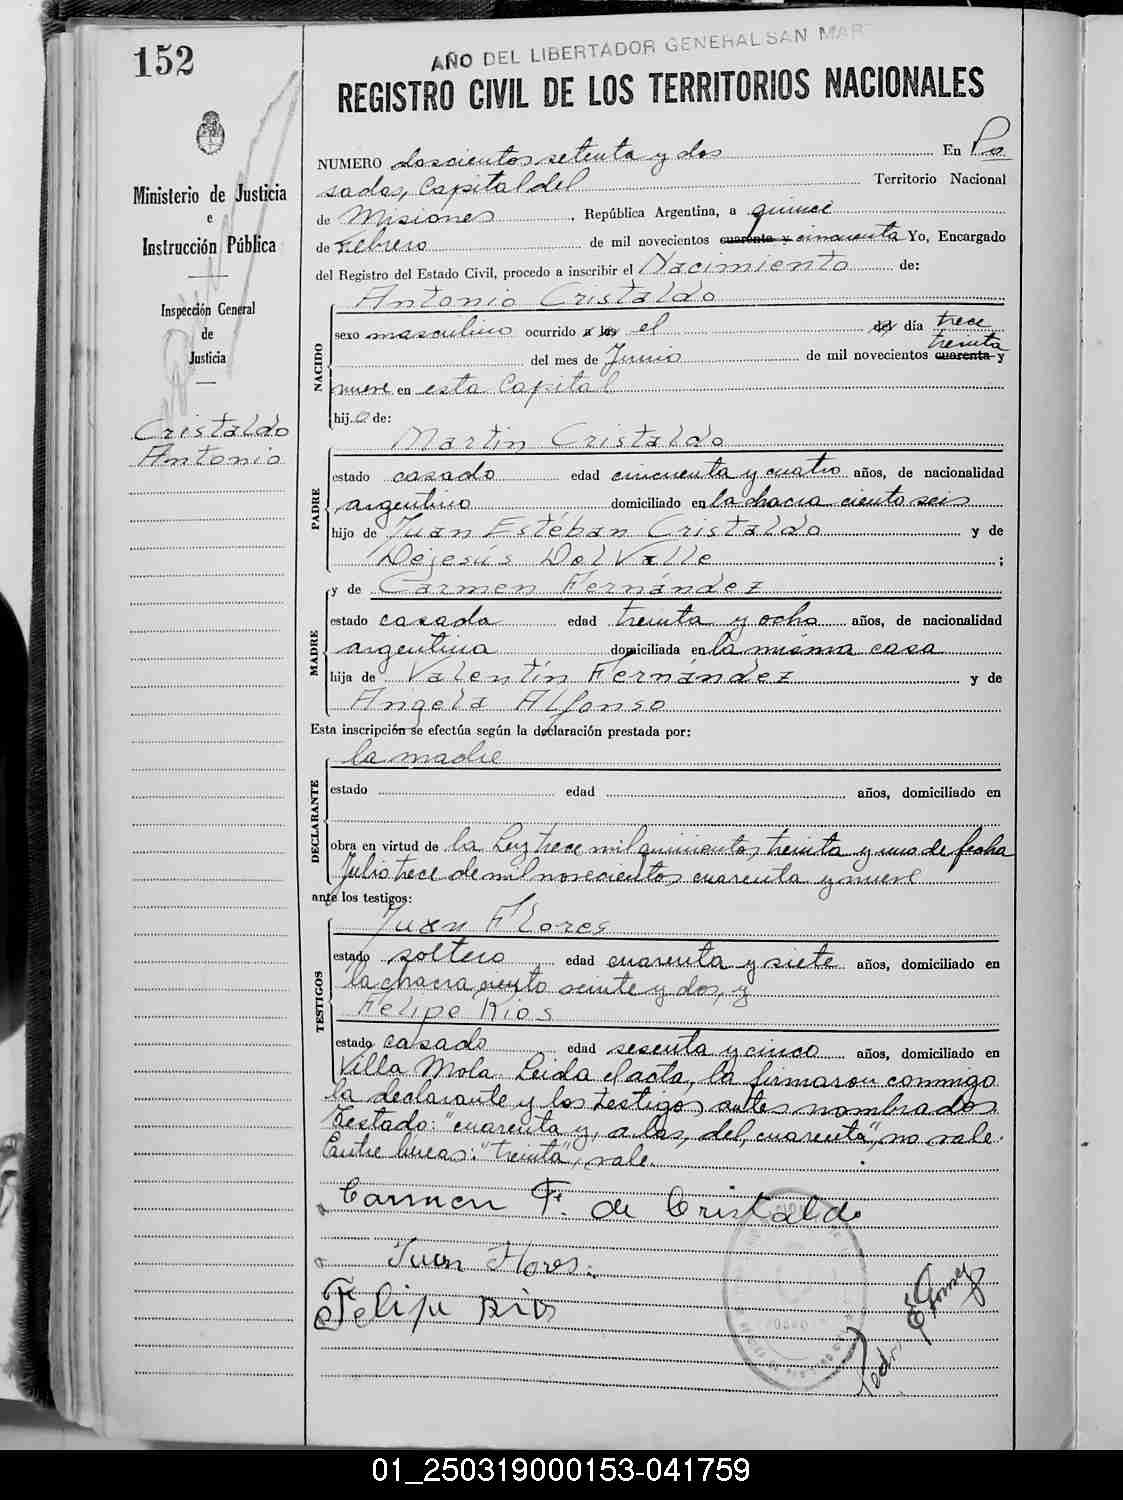 152
AÑO DEL LIBERTADOR GENERAL SAN MAR
REGISTRO CIVIL DE LOS TERRITORIOS NACIONALES
Ministerio de Justicia
e
Instrucción Pública
Inspección General
de
Justicia
Cristaldo
Antonio
NUMERO doscientos setenta y dos En Po
sadas, Capital del Territorio Nacional
de Misiones, República Argentina, a quince
de Febrero de mil novecientos cuarenta y cincuenta Yo, Encargado
del Registro del Estado Civil, procedo a inscribir el Nacimiento de:
Antonio Cristaldo
NACIDO
sexo masculino ocurrido a las el del día trece
treinta
del mes de Junio de mil novecientos cuarenta y
nueve en esta Capital
hijo de:
Martin Cristaldo
PADRE
estado casado edad cincuenta y cuatro años, de nacionalidad
argentino domiciliado en la chacra ciento seis
hijo de Juan Estéban Cristaldo y de
Dejesús Del Valle ;
y de Carmen Fernández
MADRE
estado casada edad treinta y ocho años, de nacionalidad
argentina domiciliada en la misma casa
hija de Valentín Fernández y de
Angela Alfonso
Esta inscripción se efectúa según la declaración prestada por:
la madre
DECLARANTE
estado edad años, domiciliado en
obra en virtud de la Ley trece mil quinientos treinta y uno de fecha
Julio trece de mil novecientos cuarenta y nueve
ante los testigos:
Juan Flores
TESTIGOS
estado soltero edad cuarenta y siete años, domiciliado en
la chacra ciento veinte y dos, y
Felipe Rios
estado casado edad sesenta y cinco años, domiciliado en
Villa Mola. Leida el acta, la firmaron conmigo
la declarante y los testigos antes nombrados
Testado: "cuarenta y, a las, del, cuarenta", no vale.
Entre lineas: "treinta", vale.
Carmen F. de Cristaldo
Juan Flores
Felipe Rios
01_250319000153-041759